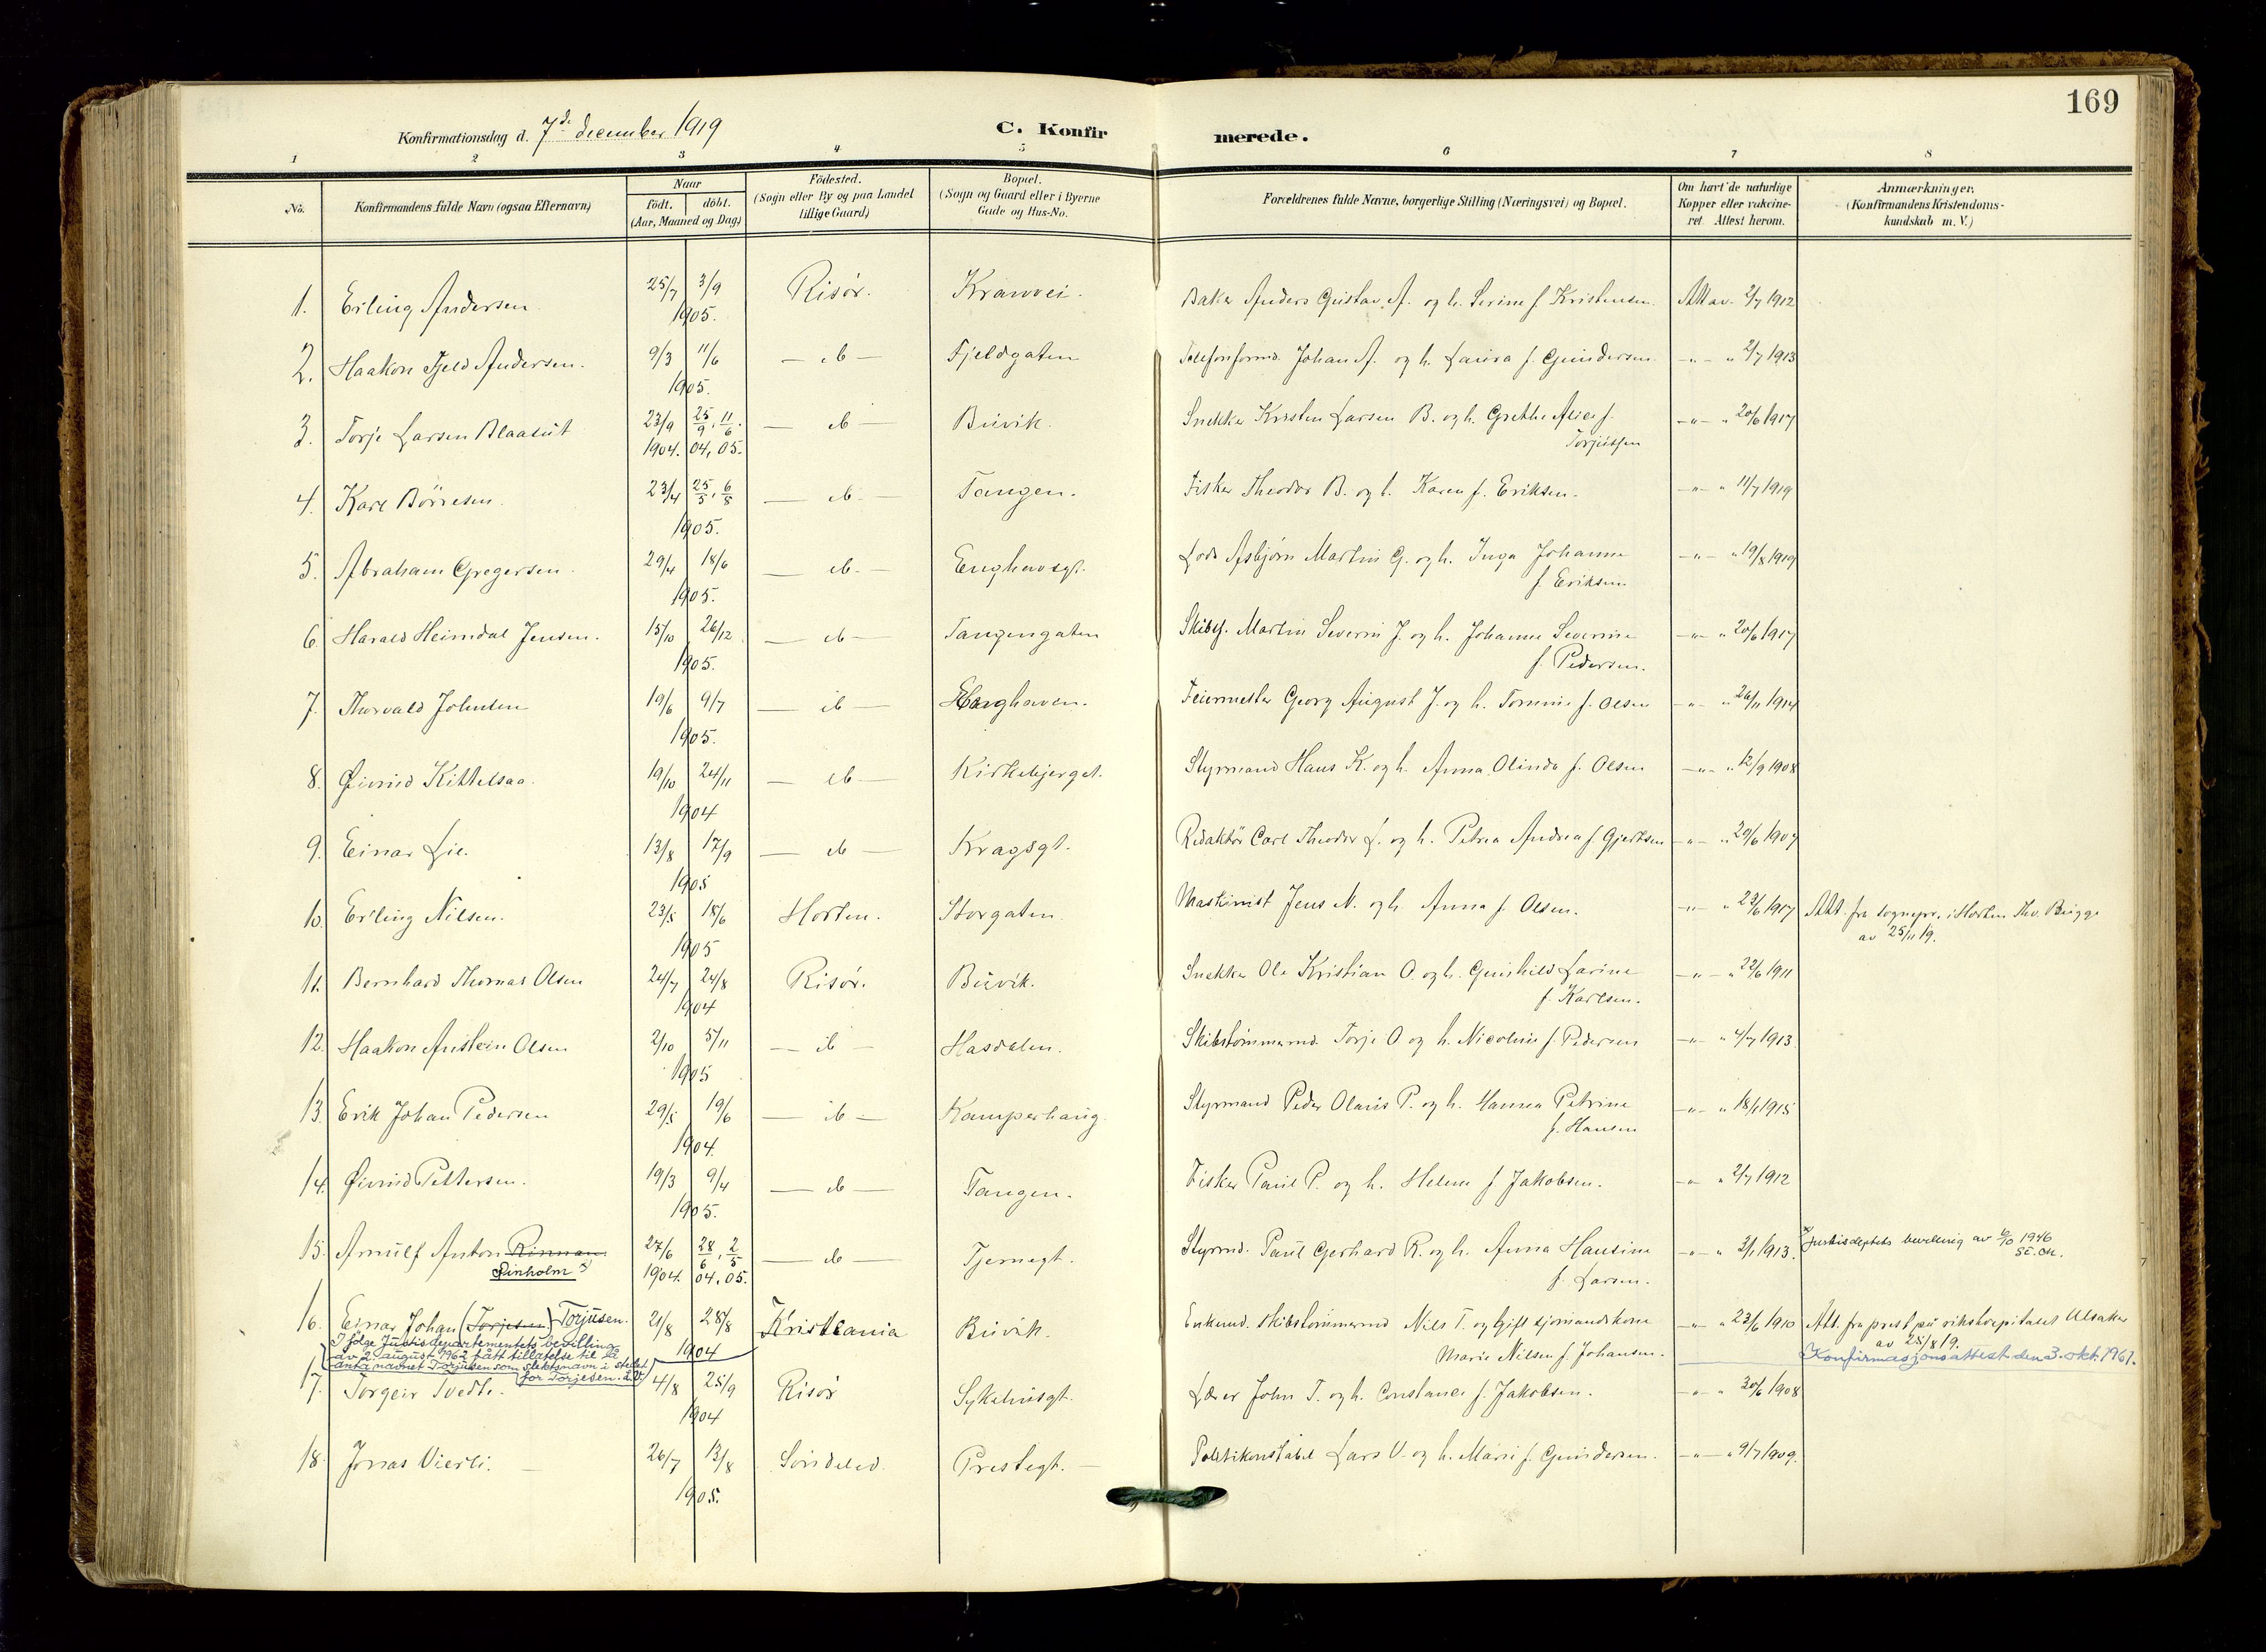 169
Konfirmationsdag d. 7de december 1919
C. Konfirmerede.
1 2 3 4 5 6 7 8
No.
Konfirmandens fulde Navn (ogsaa Efternavn)
Naar
födt. döbt.
(Aar, Maaned og Dag)
Födested.
(Sogn eller By og paa Landet tillige Gaard)
Bopæl.
(Sogn og Gaard eller i Byerne Gade og Hus-No.
Forældrenes fulde Navne, borgerlige Stilling (Næringsvei) og Bopæl.
Om havt de naturlige Kopper eller vakcineret. Attest herom.
Anmærkninger.
(Konfirmandens Kristendomskundskab m. V.)
1. Erling Andersen 25/7 3/9 1905. Risør. Kranvei. Baker Anders Gustav A. og h. Serine f. Kristensen. Att av 2/7 1912
2. Haakon Fjeld Andersen. 9/3 11/6 1905. — ib — Fjeldgaten Telefonformd. Johan A. og h. Laura f. Gundersen. —"— " 2/7 1913
3. Torje Larsen Blaasut 23/9 1904. 25/9 04, 11/6 05. — ib — Buvik. Snekker Kristen Larsen B. og h. Grethe Alice f. Torjussen —"— " 20/6 1917
4. Karl Börresen. 23/4 25/5, 6/8 1905. — ib — Tangen. Fisker Theodor B. og h. Karen f. Eriksen. —"— " 11/7 1919
5. Abraham Gregersen. 29/4 18/6 1905. — ib — Enghavsgt. Lods Asbjørn Martin G. og h. Inga Johanne f. Eriksen —"— " 19/8 1919
6. Harald Heimdal Jensen. 15/10 26/12 1905. — ib — Tangengaten Skibsf. Martin Severin J. og h. Johanne Severine f. Pedersen. —"— " 20/6 1917
7. Thorvald Johnsen 19/6 9/7 1905. — ib — Enghaven. Feiermester Georg August J. og h. Tomine f. Olsen —"— " 26/11 1914
8. Øivind Kittelsaa. 19/10 24/11 1904 — ib — Kirkebjerget. Styrmand Hans K. og h. Anna Olinda f. Olsen —"— " 12/9 1908
9. Einar Lie. 13/8 17/9 1905 — ib — Kragsgt. Redaktör Carl Theodor L. og h. Petrea Andrea f. Gjertsen —"— " 29/6 1907
10. Erling Nilsen. 23/5 18/6 1905 Horten. Storgaten. Maskinist Jens N. og h. Anna f. Olsen. —"— " 23/6 1917 Att. fra sognepr. i Horten Thv. Brügge av 25/11 19.
11. Bernhard Thomas Olsen 24/7 24/8 1904 Risör. Buvik. Snekker Ole Kristian O. og h. Gunhild Larine f. Karlsen. —"— " 22/6 1911
12. Haakon Austein Olsen 2/10 5/11 1905 — ib — Hasdalen. Skibstömmermd. Torje O. og h. Nicoline f. Pedersen —"— " 4/7 1913.
13. Erik Johan Pedersen 29/5 19/6 1904. — ib — Kamperhaug. Styrmand Peder Olaus P. og h. Hanna Petrine f. Hansen —"— " 18/1 1915
14. Øivind Pettersen. 19/3 9/4 1905. — ib — Tangen. Fisker Paul P. og h. Helene f. Jakobsen. —"— " 2/7 1912
15. Arnulf Anton Rinman Rinholm x) 27/6 1904. 28/6 04, 2/5 05. — ib — Tjernegt. Styrmd. Paul Gerhard R. og h. Anna Hansine f. Larsen. —"— " 3/1 1913. x Justisdeptets bevilling av 6/10 1946
16. Einar Johan (Torjesen) Torjusen. 21/8 28/8 1904 Kristiania Buvik. Enkemd. Skibstömmermd Nils T. og Gift sjömandskone Marie Nilsen f. Johansen. —"— " 23/6 1910 Att. fra prest på rikshospitalet Ulsaker av 25/8 19.
I følge Justisdepartementets bevilling
av 2. august 1962 fått tillatelse til å
anta navnet Torjusen som slektsnavn i stedet
for Torjesen.
Konfirmasjonsattest den 3. okt. 1961.
17. Torgeir Tvedte. 4/8 25/9 1904 Risör Sykehusgt. Lærer John T. og h. Constance f. Jakobsen. —"— " 30/6 1908
18. Jonas Vierli. — 26/7 13/8 1905. Söndeled. Prestegt. — Politikonstabel Lars V. og h. Marie f. Gundersen. —"— " 9/7 1909.